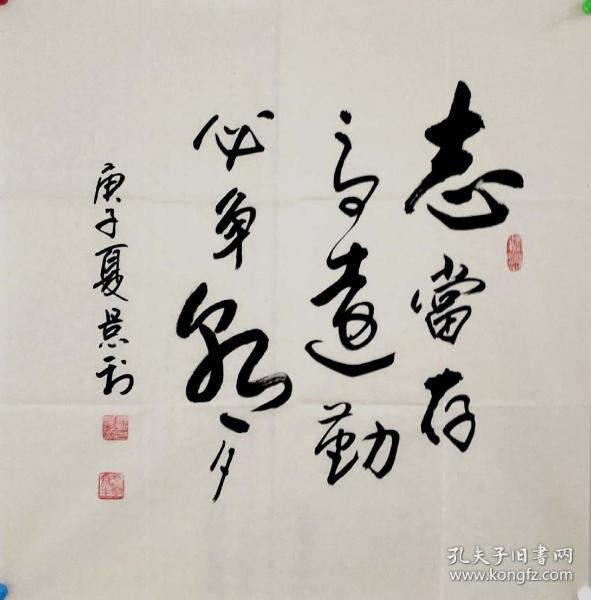 志當存
高遠勤
必争朝夕
庚子夏景
孔夫子旧書网
www.kongfz.com